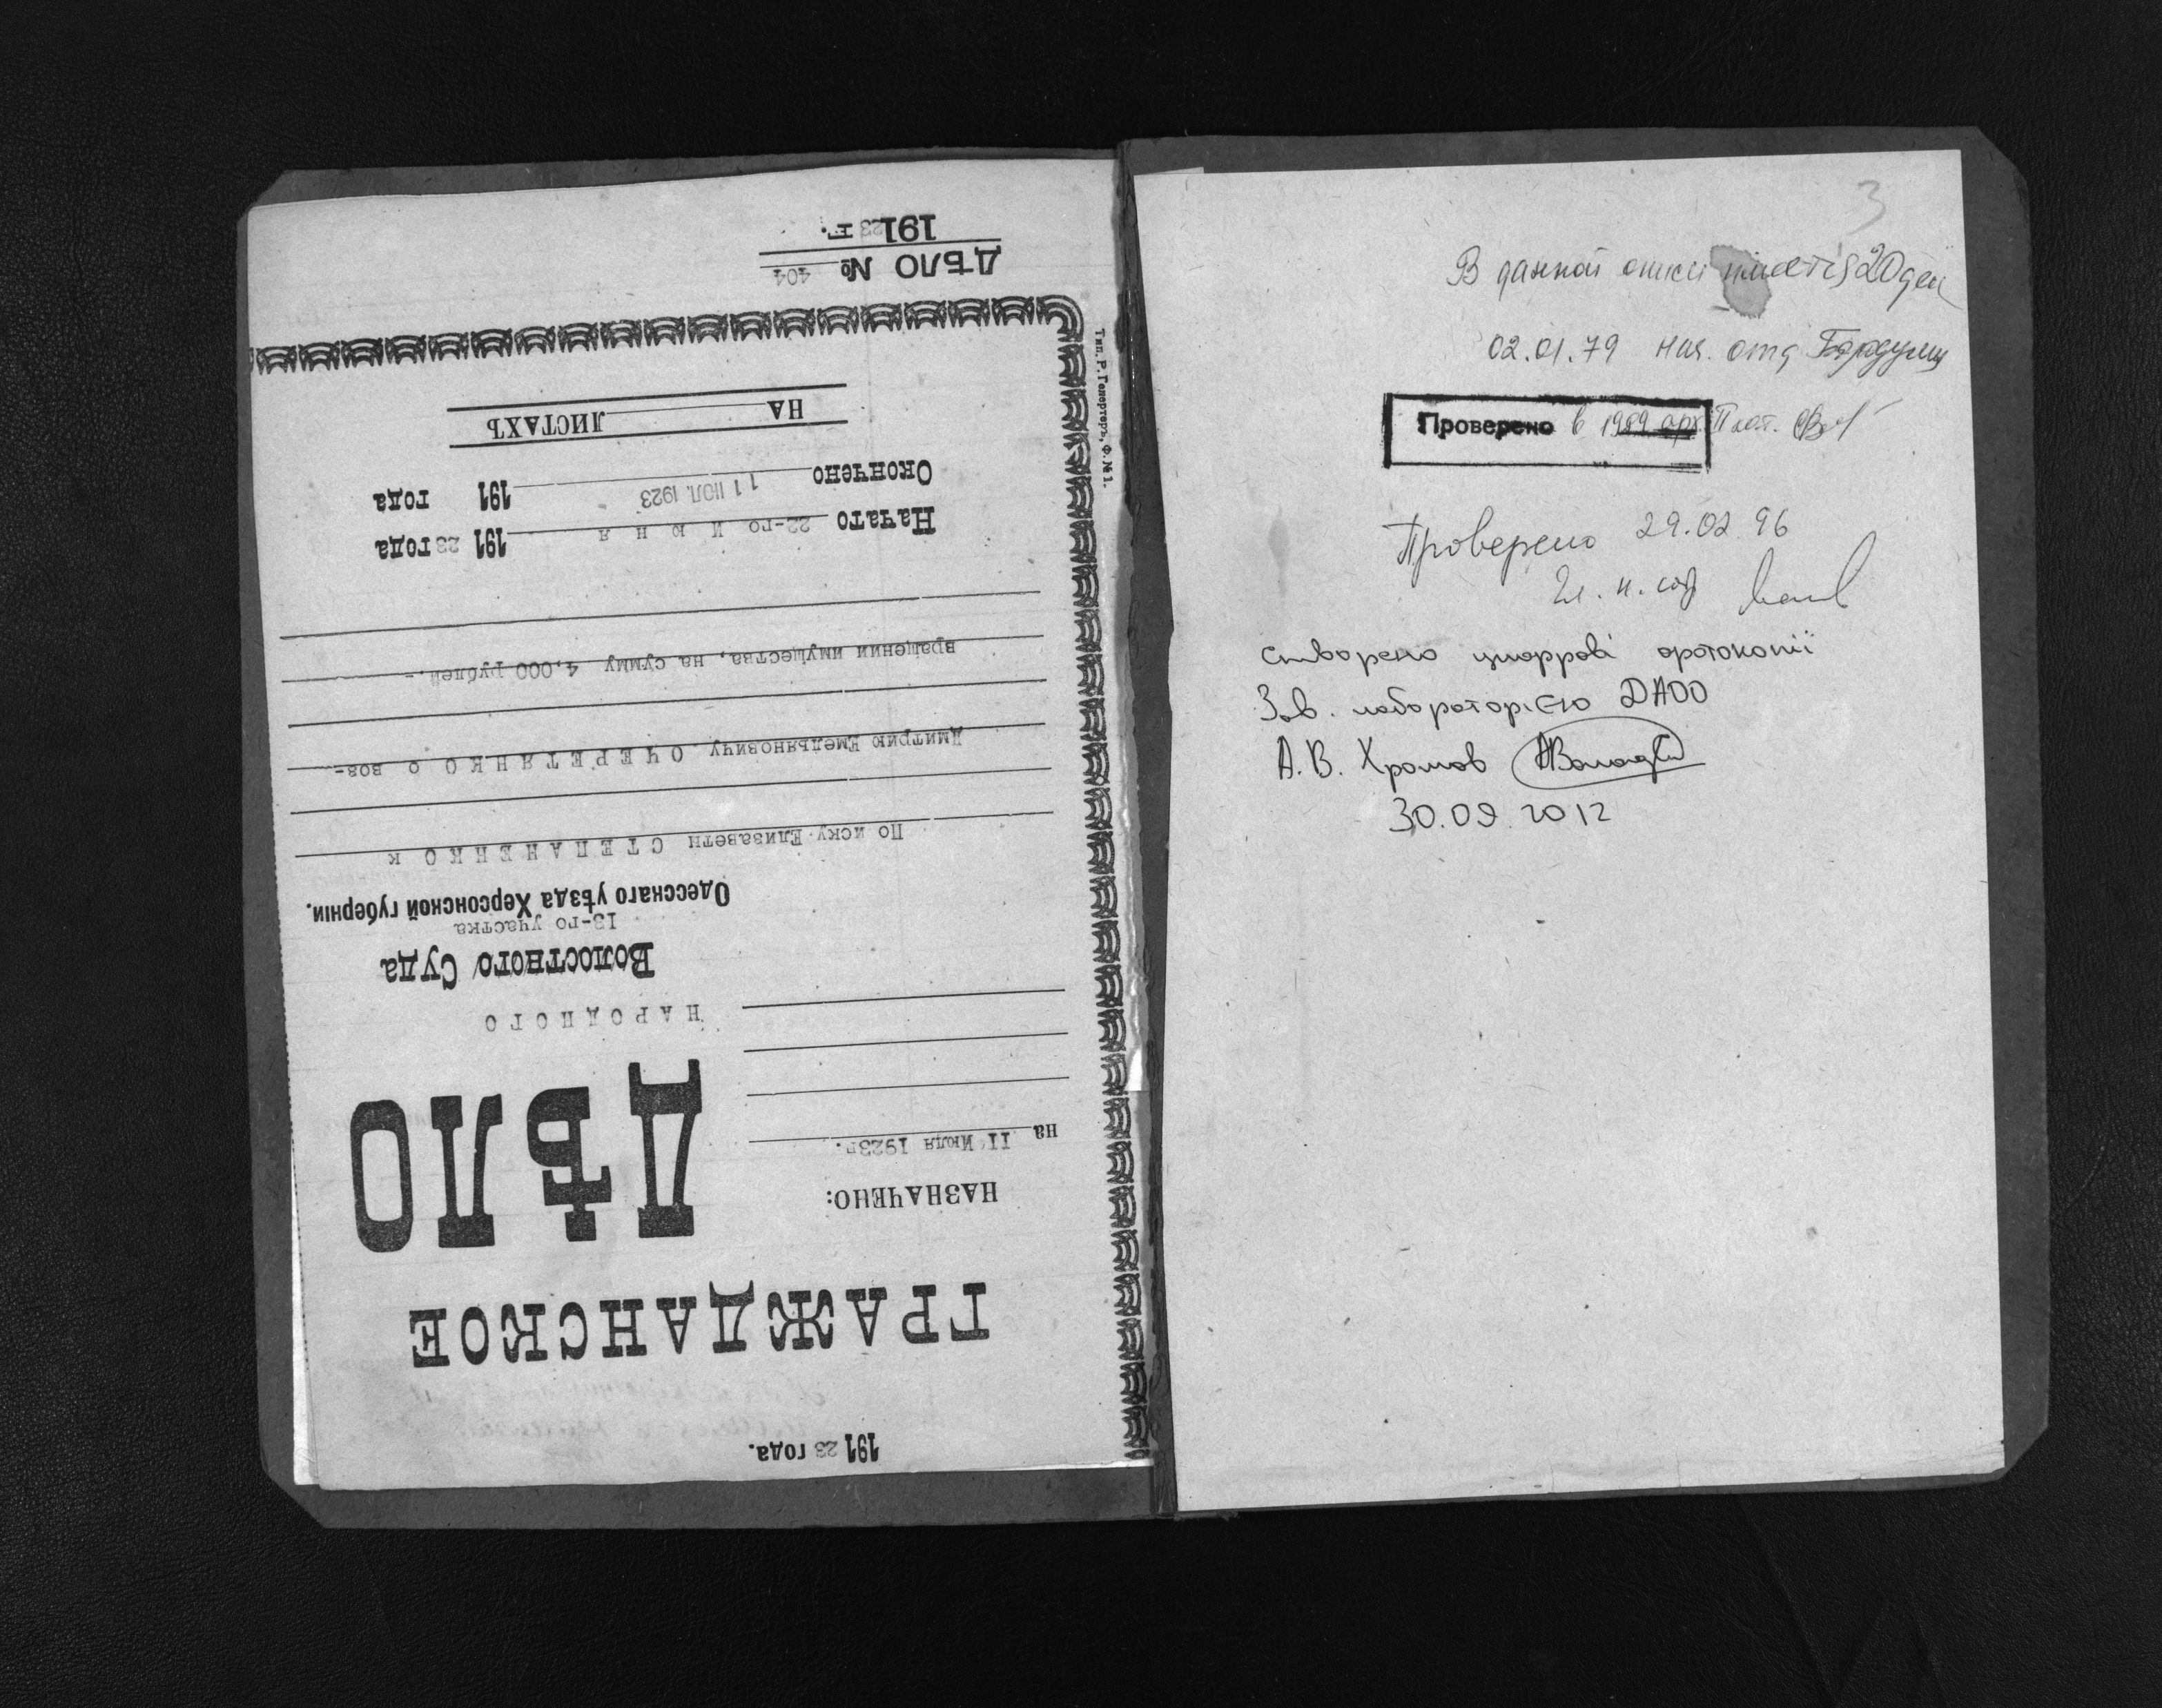 1923 года.
ГРАЖДАНСКОЕ
ДѢЛО
НАЗНАЧЕНО:
на 11 Июля 1923г.
НАРОДНОГО
Волостного Суда
13-го участка
Одесскаго уѣзда Херсонской губерніи.
По иску Елизаветы СТЕПАНЕНКО к
Дмитрию Емельяновичу ОЧЕРЕТЯНКО о воз-
вращении имущества, на сумму 4.000 рублей.-
Начато 22-го Июня 191 23 года
Окончено 11 ИЮЛ. 1923 191 года
НА ЛИСТАХЪ
ДѢЛО № 404
191 23 г.
Тип. Р. Гепертеръ, Ф. № 1.
3
В данной описи имеется 20 дел
02.01.79 нач. отд
Проверено в 1989 арх. I кат.
Проверено 29.02.96
Гл. н. сотр
Створено цифрові фотокопії
Зав. лабораторією ДАОО
А.В. Хромов
30.09.2012